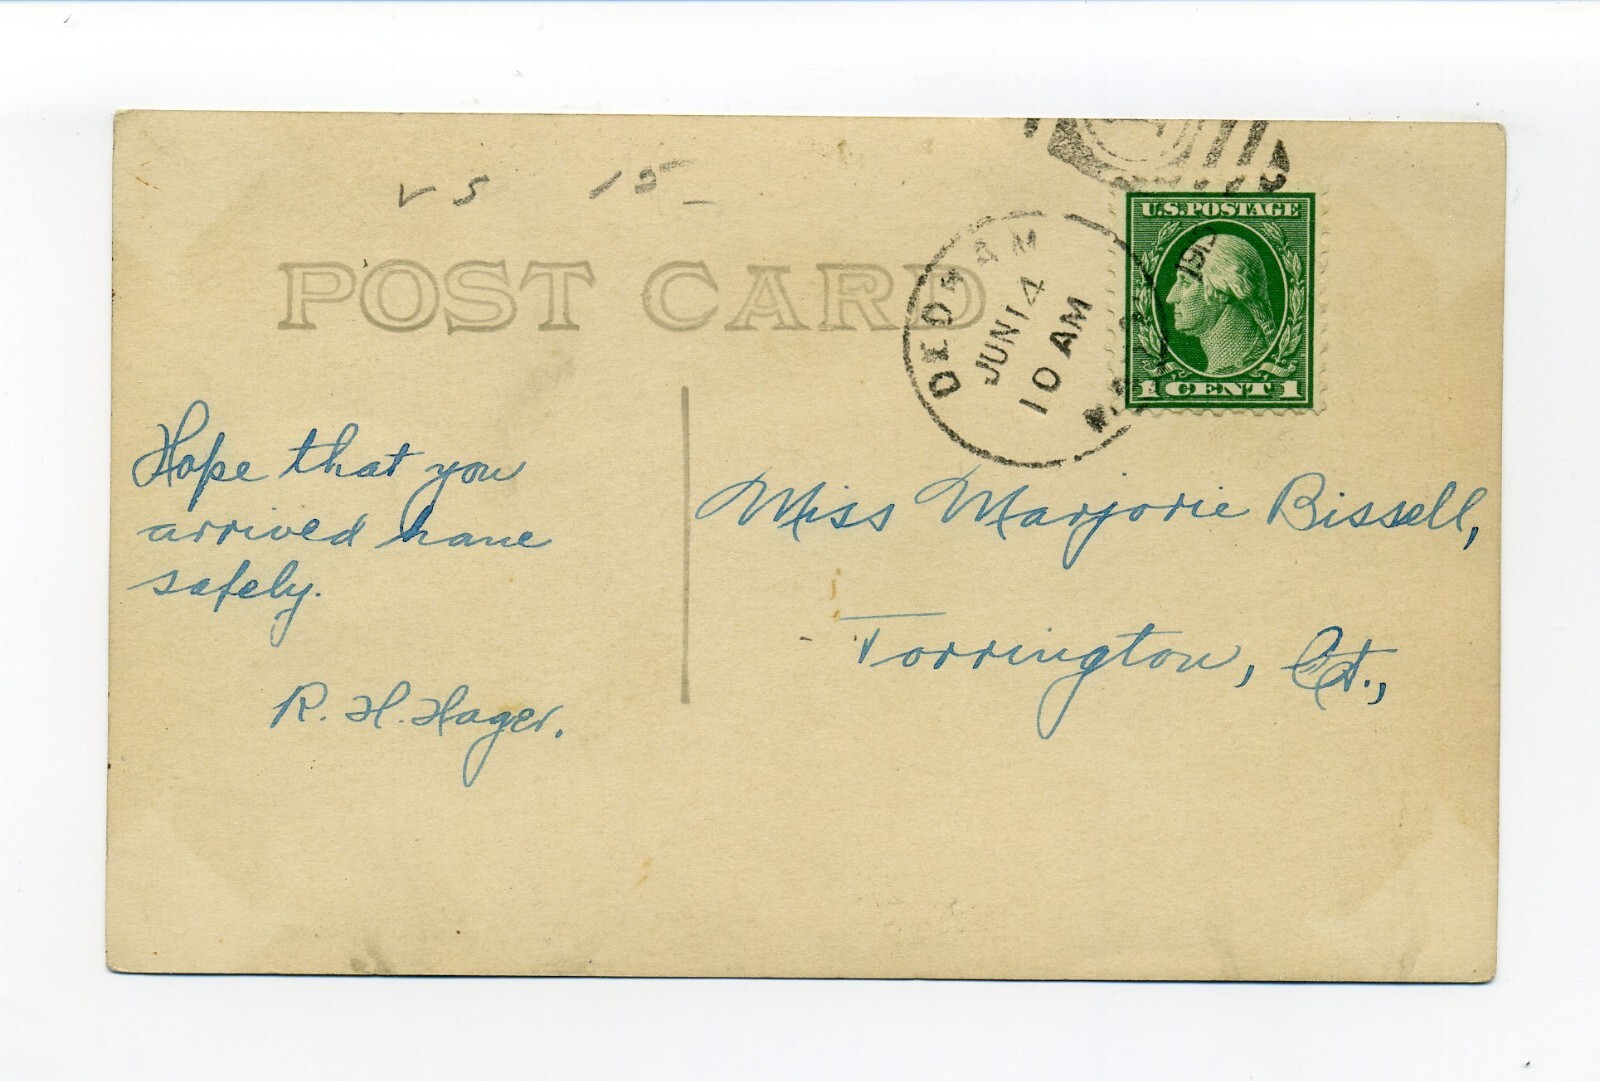 VS 15
POST CARD
DEDHAM
JUN 14
10 AM
U.S. POSTAGE
1 CENT 1
Hope that you
arrived home
safely.
R. H. Hager.
Miss Marjorie Bissell,
Torrington, Ct.,